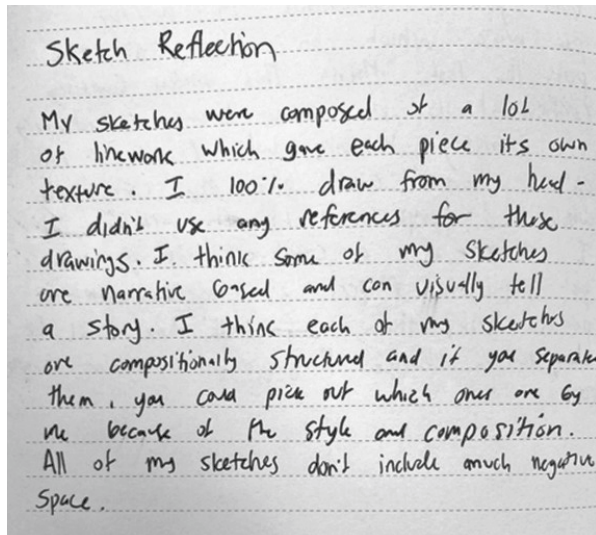 Sketch Reflection
My sketches were composed of a lot
of linework which gave each piece its own
texture. I 100% draw from my head -
I didn't use any references for these
drawings. I think some of my sketches
are narrative based and can visually tell
a story. I think each of my sketches
are compositionally structured and if you separate
them, you could pick out which ones are by
me because of the style and composition.
All of my sketches don't include much negative
space.